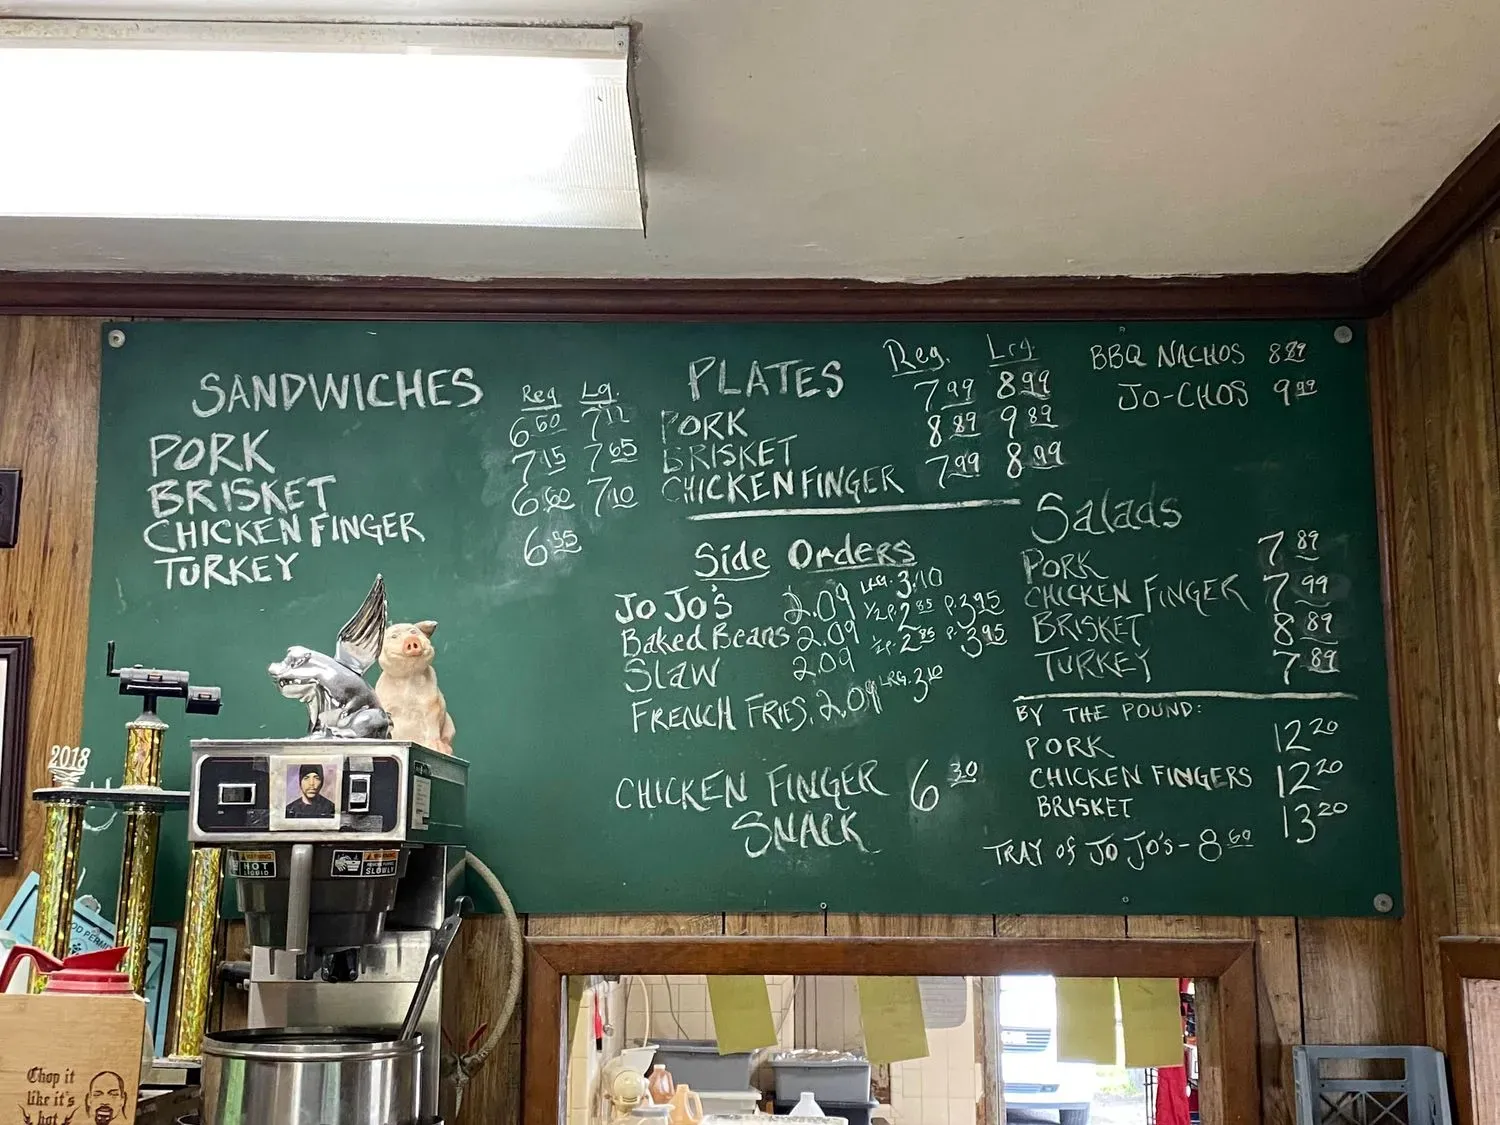 SANDWICHES Reg Lg.
PORK 6 60 7 12
BRISKET 7 15 7 65
CHICKEN FINGER 6 60 7 10
TURKEY 6 55
PLATES Reg. Lrg.
PORK 7 99 8 99
BRISKET 8 89 9 89
CHICKEN FINGER 7 99 8 99
Side Orders
JO JO'S 2.09 LRG. 3.10
Baked Beans 2.09 1/2 P. 2 85 P. 3 95
Slaw 2.09 1/2 P. 2 85 P. 3 95
FRENCH FRIES. 2.09 LRG. 3 10
CHICKEN FINGER 6 30
SNACK
BBQ NACHOS 8 89
JO-CHOS 9 99
Salads
PORK 7 89
CHICKEN FINGER 7 99
BRISKET 8 89
TURKEY 7 89
BY THE POUND:
PORK 12 20
CHICKEN FINGERS 12 20
BRISKET 13 20
TRAY of JO JO'S - 8 60
2018
HOT
LIQUID
SLOWLY
Chop it
like it's
hot